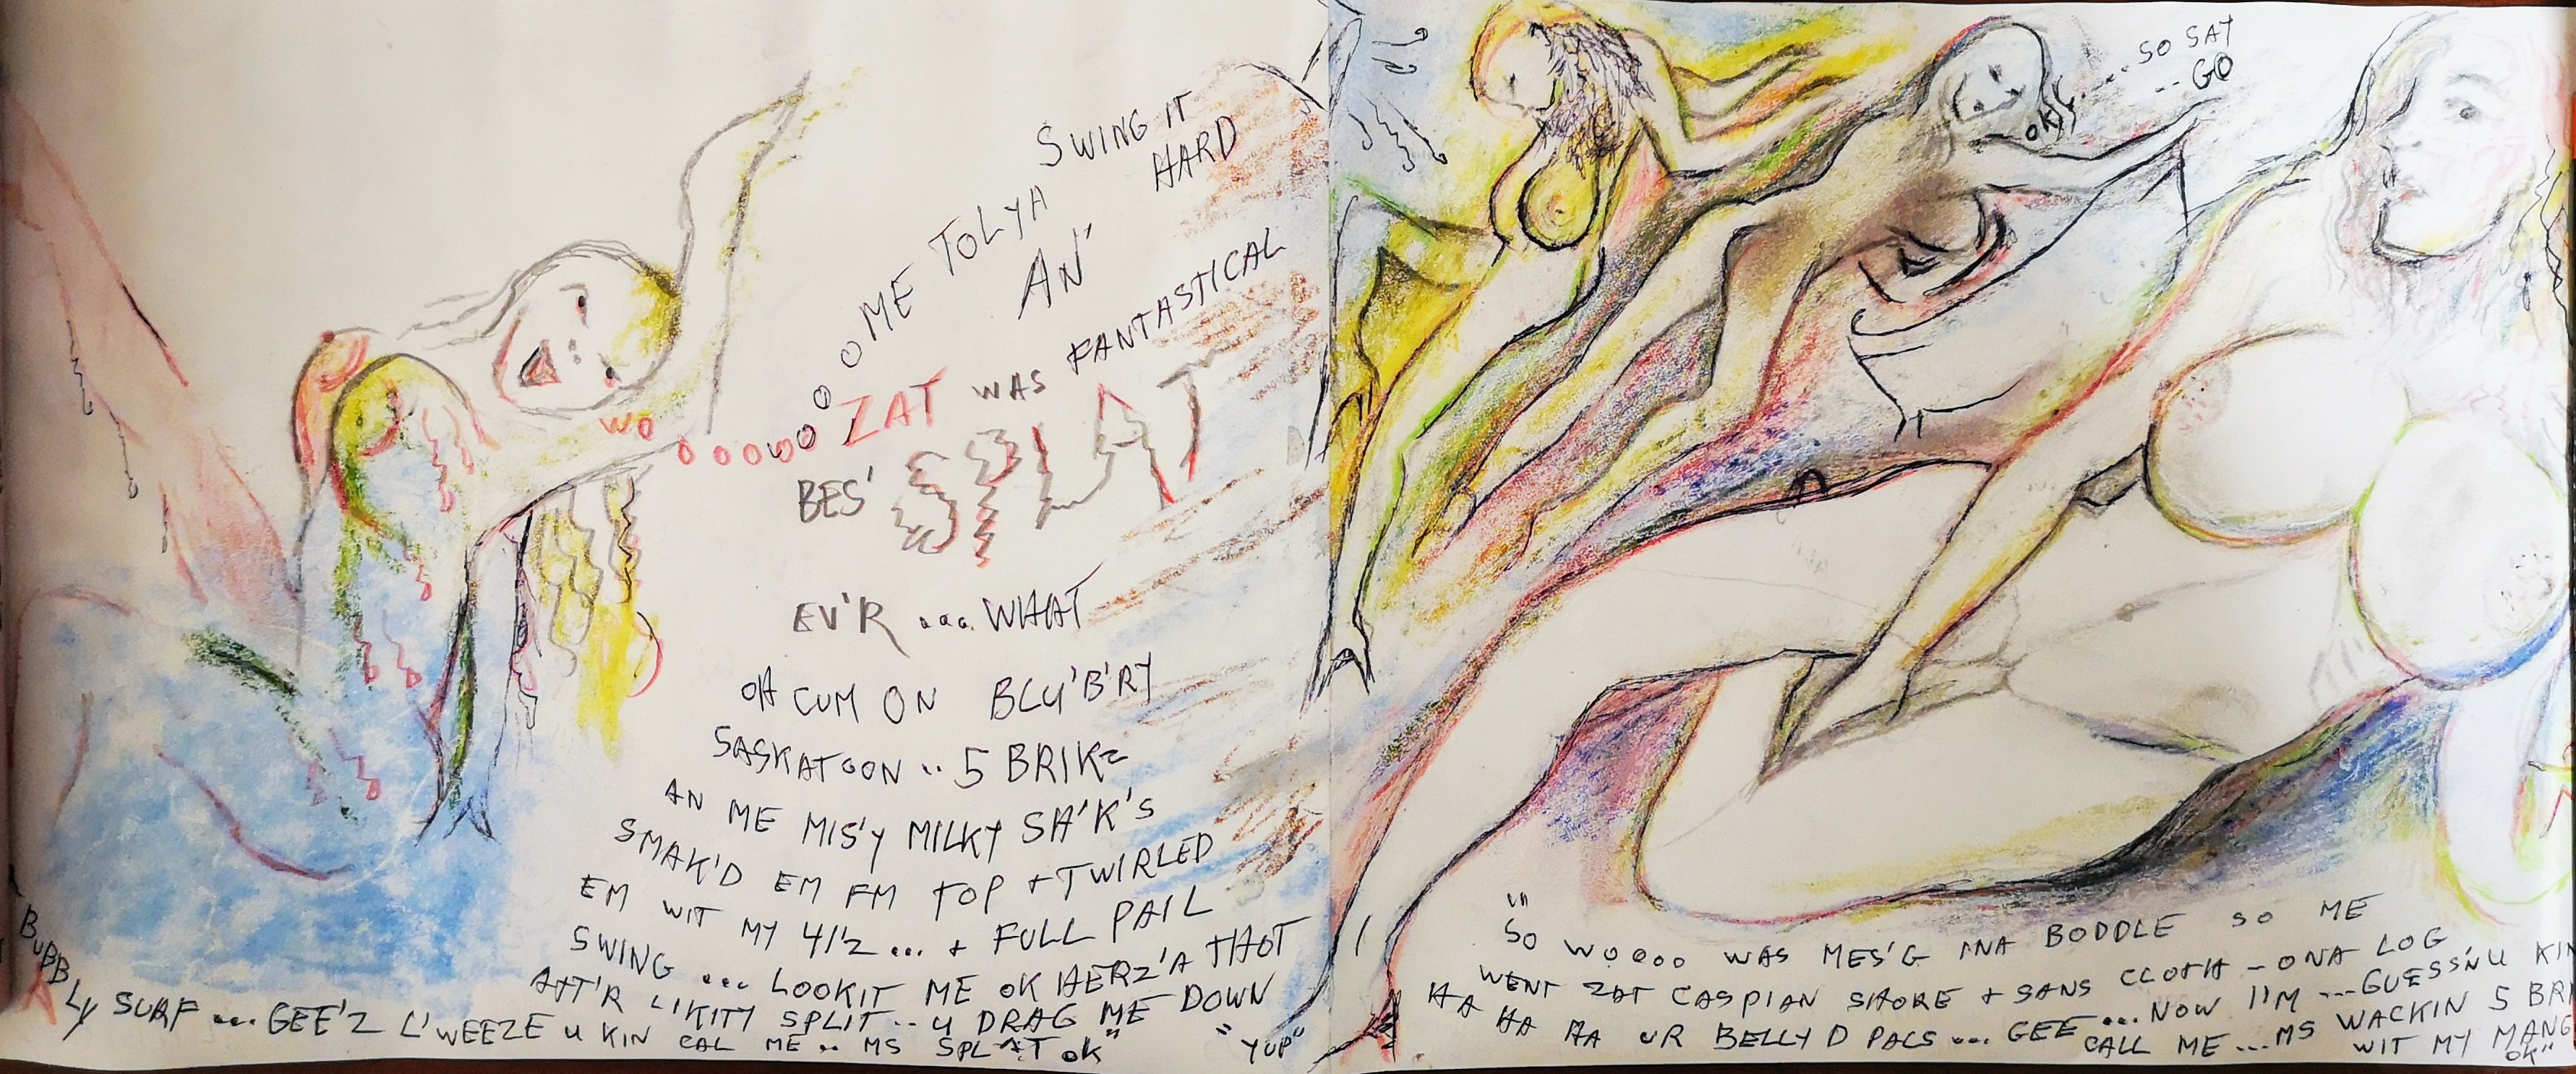 SWING IT
HARD
WO OOOOWOOOO ME TOLYA
AN'
ZAT WAS FANTASTICAL
BES' SPLAT
EV'R ... WHAT
OH CUM ON BLU'B'RY
SASKATOON .. 5 BRIKZ
AN ME MIS'Y MILKY SA'K'S
SMAK'D EM FM TOP + TWIRLED
EM WIT MY 41'Z ... + FULL PAIL
SWING ... LOOKIT ME OK HERZ'A THOT
AFT'R LIKITY SPLIT .. U DRAG ME DOWN
BUBBLY SURF ... GEE'Z L'WEEZE U KIN CAL ME .. MS SPLAT OK"
"YUP"
OK
... SO SAY
-- GO
"SO WOOOO WAS MES'G INA BODDLE SO ME
WENT ZAT CASPIAN SHORE + SANS CLOTH - ONA LOG
HA HA HA UR BELLY D PALS ... GEE ... NOW I'M ... GUESS'N U KIN
CALL ME ... MS WACKIN 5 BRI
WIT MY MANG
OK"